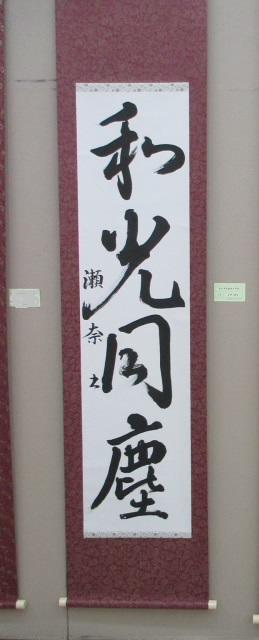 和光同塵
瀬奈